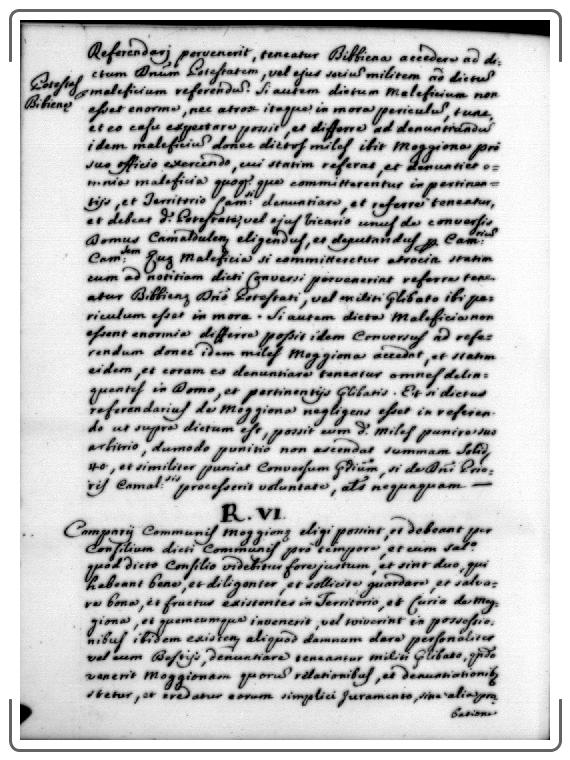 Referendarj pervenerit, teneatur Bibbiena accedere ad di-
ctum Dnum Potestatem, vel ejus socium militem ad dictum
Potestas
Bibienę
maleficium referendum. Si autem dictum Maleficium non
esset enorme, nec atrox itaque in mora periculum, tunc
et eo casu expectare possit, et differre ad denuntiandum
idem maleficium donec dictus miles ibit Moggiona pro
suo officio exercendo, cui statim referat, et denuntiet o-
mnia maleficia quoque que committerentur in pertinen-
tijs, et Territorio denuntiare, et referre teneatur,
et debeat D. Potestate, vel ejus Vicario unus de conversis
Domus Camaldulen. eligendus, et deputandus
Maleficia si committeretur atrocia statim
cum ad notitiam dicti Conversi pervenerint referre tene-
atur Bibbienę Dno Potestati, vel militi Glibato ibi pe-
riculum esset in mora. Si autem dicta Maleficia non
essent enormia differre possit idem Conversus ad refe-
rendum donec idem miles Moggiona accedat, et statim
eidem, et coram eo denuntiare teneatur omnes delin-
quentes in Domo, et pertinentijs Glibatis. Et si dictus
referendarius de Moggiona negligens esset in referen-
do ut supra dictum est, possit eum d. Miles punire suo
arbitrio, dummodo punitio non ascendat summam Solid.
40, et similiter puniat Conversum, si de Dni Prio-
ris Camal. processerit voluntate, als nequaquam —
R. VI.
Camparij Communis Moggionę eligi possint, et debeant per
Consilium dicti Communis pro tempore, et cum
quod dicto Consilio videbitur fore justum, et sint duo, qui
habeant bene, et diligenter, et sollicite guardare, et salva-
re bona, et fructus existentes in Territorio, et Curia de Mog-
giona, et quemcumque invenerit, vel viverint in possessio-
nibus ibidem existen. aliquod damnum dare personaliter
vel cum Bestijs, denuntiare teneantur militi Glibato, qndo
venerit Moggionam quorum relationibus, et denuntiationibus
stetur, et credatur eorum simplici Juramento, sine alia pro
batione